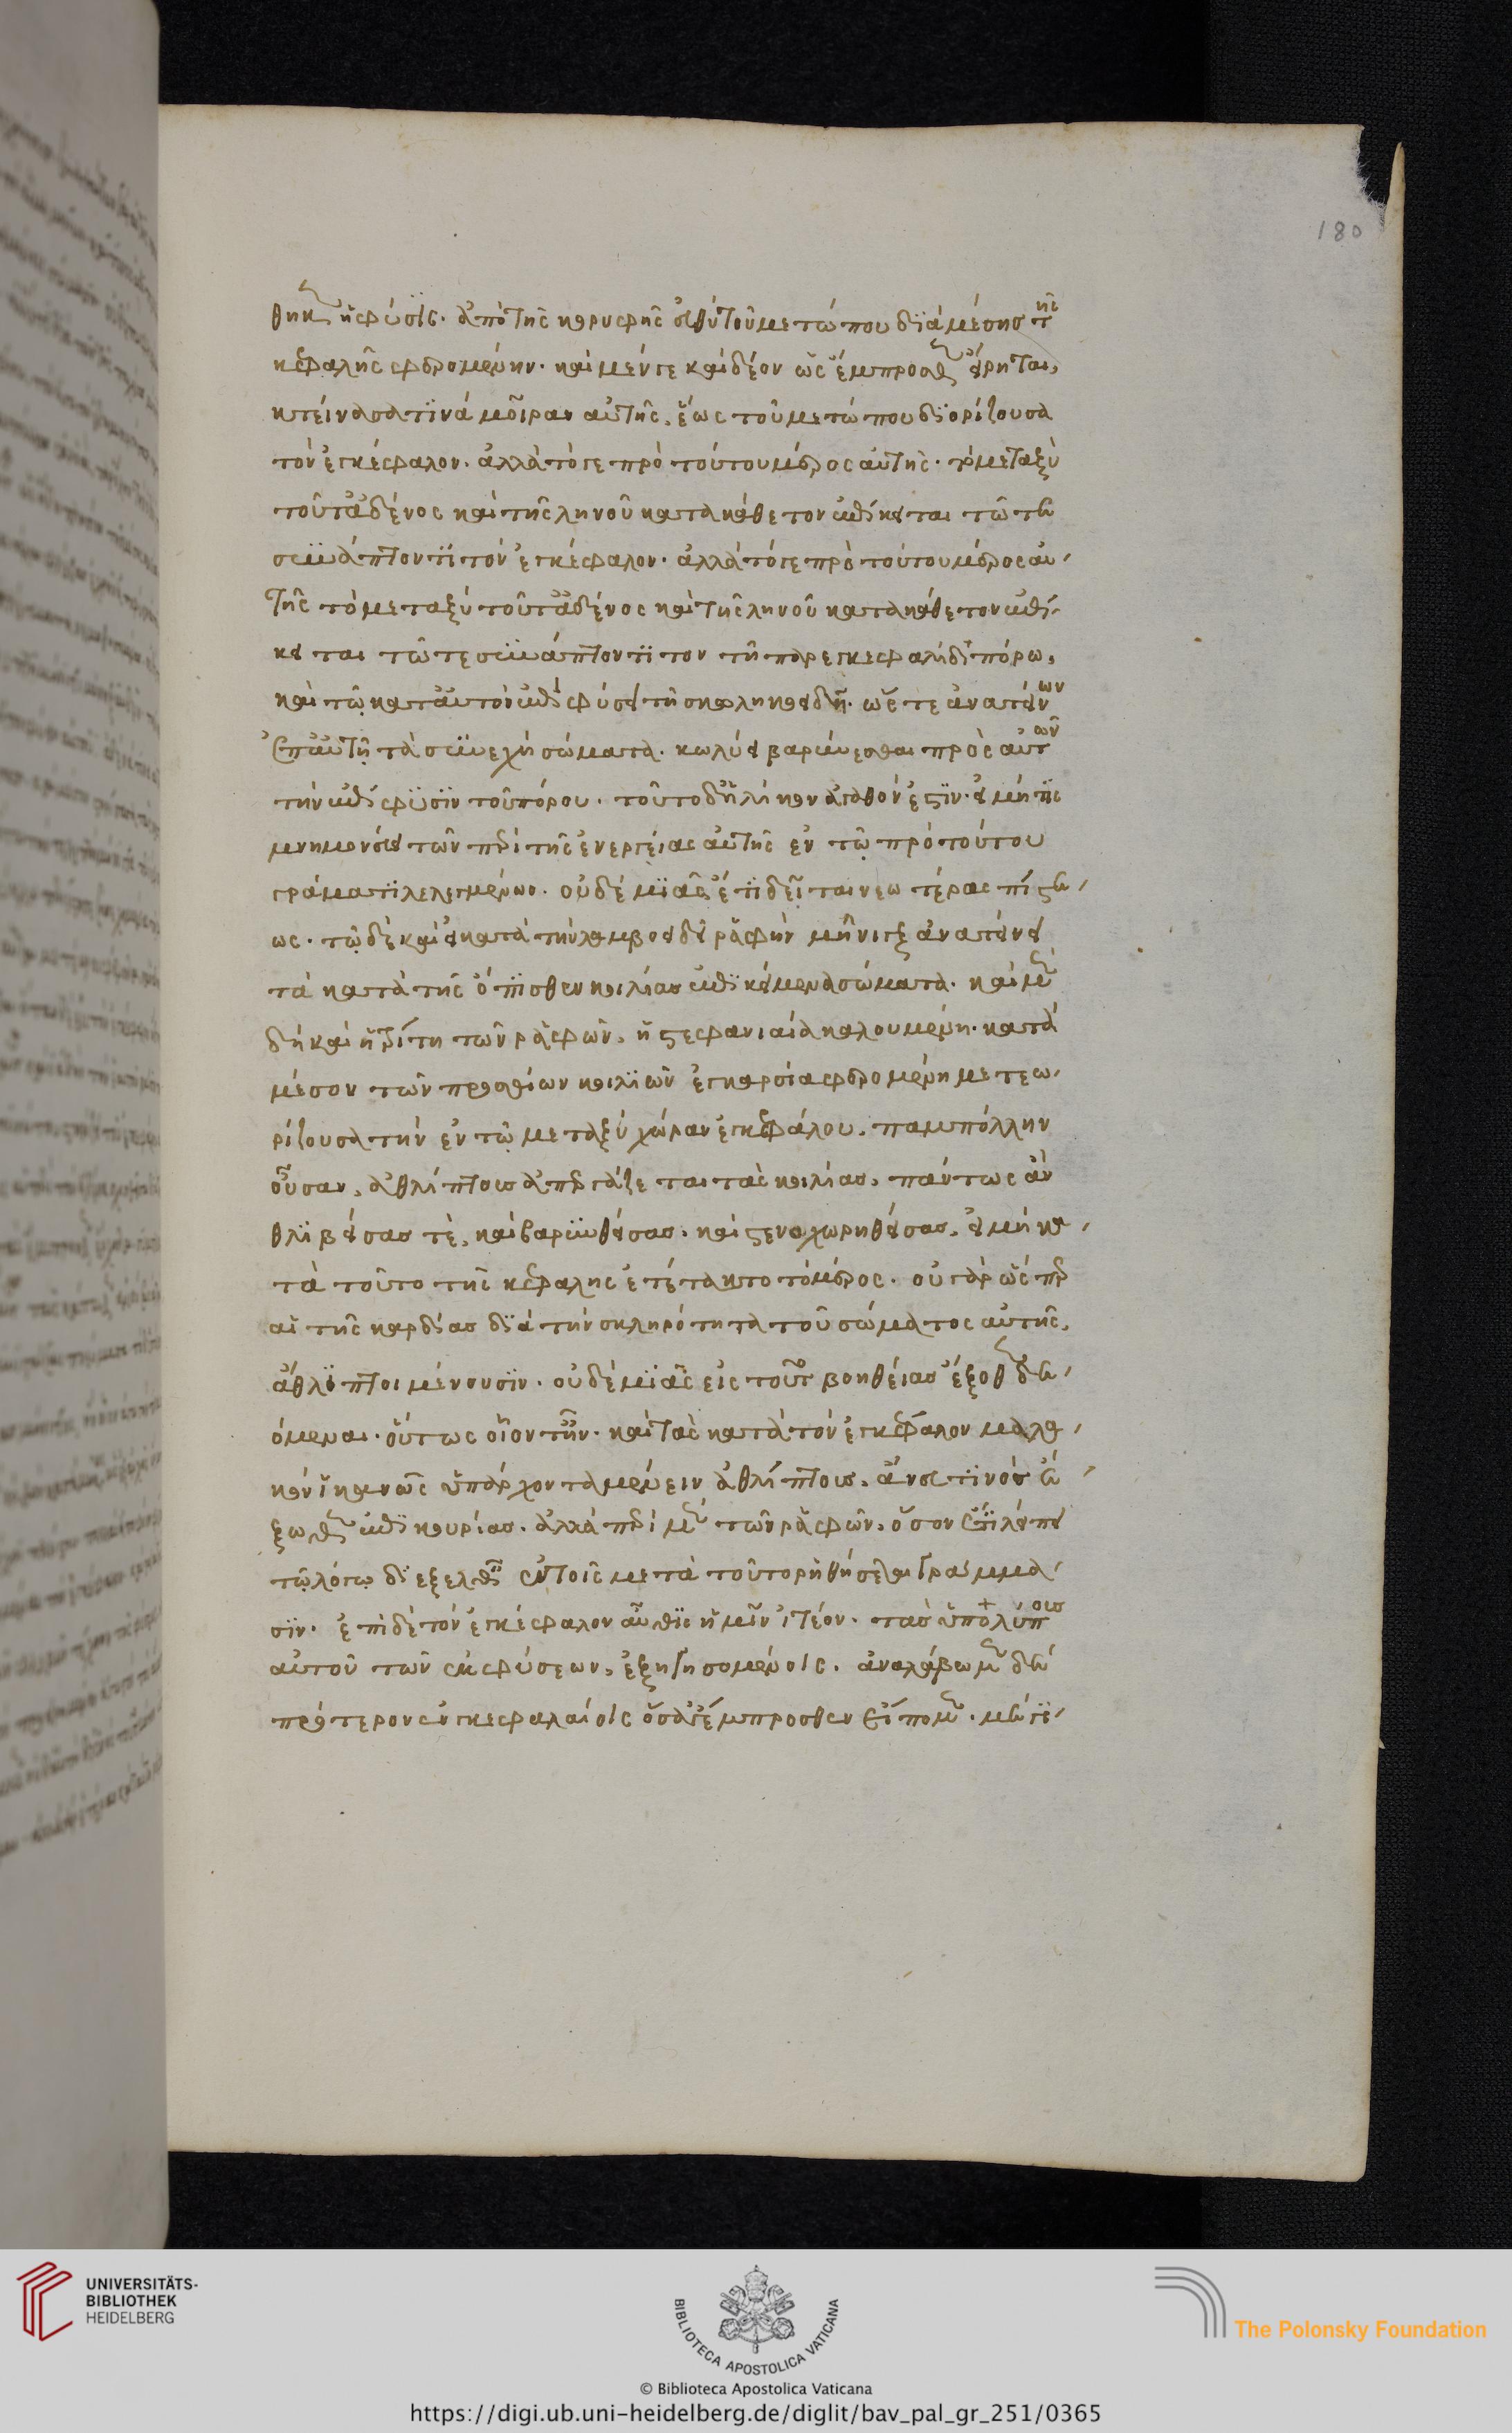 180
θηκεν ἡ φύσις. ἀπὸ τῆς κορυφῆς εὐθὺ τοῦ μετώπου διὰ μέσης τῆς
κεφαλῆς φερομένην. καὶ μέν γε καὶ δέον ὡς ἔμπροσθεν εἴρηται,
κτείνασα τινά μοῖραν αὐτῆς, ἕως τοῦ μετώπου διορίζουσα
τὸν ἐγκέφαλον. ἀλλὰ τό γε πρὸ τούτου μέρος αὐτῆς. τὸ μεταξὺ
τοῦ γ ἀδένος καὶ τῆς ληνοῦ κατα κάθετον ἐπίκειται τῶ τε
συνάπτοντι τὸν ἐγκέφαλον. ἀλλὰ τό γε πρὸ τούτου μέρος αὐ
τῆς τὸ μεταξὺ τοῦ γ ἀδένος καὶ τῆς ληνοῦ κατα κάθετον ἐπί
κειται τῶ τε συνάπτοντι τον τῆ παρεγκεφαλίδι πόρω,
καὶ τῶ κατ αὐτὸν ἐπιφύσει τῆ σκωληκοειδῆ. ὥς τε ἀνατείνων
ἐπ αὐτῆ τὰ συνεχῆ σώματα. κωλύει βαρύνεσθαι πρὸς αὐτῶν
τὴν ἐπίφυσιν τοῦ πόρου. τοῦτο δ ἡλίκον ἀγαθόν ἐστιν. εἰ μή τις
μνημονεύει τῶν περὶ τῆς ἐνεργείας αὐτῆς ἐν τῶ πρὸ τούτου
γράματι λελεγμένων. οὐδὲ μιᾶς ἔτι δεῖται νεωτέρας πίστε
ως. τῷ δὲ καὶ κατὰ τὴν λαμβοειδῆ ῥαφὴν μῆνιγξ ἀνατείνει
τὰ κατὰ τῆς ὄπισθεν κοιλίας ἐπικείμενα σώματα. καὶ μὲν
δὴ καὶ ἡ τρίτη τῶν ῥαφῶν, ἡ στεφανιαία καλουμένη. κατὰ
μέσον τῶν προσθίων κοιλιῶν ἐγκαρσία φερομένη μετεω
ρίζουσα τὴν ἐν τῷ μεταξὺ χώραν ἐγκεφάλου. παμπόλλην
οὖσαν, ἀθλίπτους ἀπεργάζεται τὰς κοιλίας, πάντως ἂν
θλιβείσας τὲ, καὶ βαρυνθείσας. καὶ στενοχωρηθείσας, εἰ μὴ κα
τὰ τοῦτο τῆς κεφαλης ἐτέτακτο τὸ μέρος. οὐ γὰρ ὥσπερ
αἱ τῆς καρδίας διὰ τὴν σκληρότητα τοῦ σώματος αὐτῆς,
ἄθλιπτοι μένουσιν. οὐδὲ μιᾶς εἰς τοῦτο βοηθείας ἔξωθεν δε
όμεναι. οὕτως οἷόν τ ἦν. καὶ τὰς κατὰ τὸν ἐγκέφαλον μαλα
κὸν ἱκανῶς ὑπάρχοντα μένειν ἀθλίπτους, ἄνευ τινὸς ἔ
ξωθεν ἐπικουρίας. ἀλλὰ περὶ μὲν τῶν ῥαφῶν. ὅσον ἔτι λείπει
τῷ λόγῳ διεξελθεῖν ἐν τοῖς μετὰ τοῦτο ῥηθήσεται γράμμα
σιν. ἐπὶ δὲ τὸν ἐγκέφαλον αὖθις ἡμῖν ἰτέον. τὰς ὑπολύπους
αὐτοῦ τῶν ἐκφύσεων, ἐξηγησομένοις. ἀναλάβωμεν δὲ
πρότερον ἐν κεφαλαίοις ὅσα γ ἔμπροσθεν εἴπομεν. μέγι
UNIVERSITÄTS-
BIBLIOTHEK
HEIDELBERG
BIBLIOTECA APOSTOLICA VATICANA
The Polonsky Foundation
© Biblioteca Apostolica Vaticana
https://digi.ub.uni-heidelberg.de/diglit/bav_pal_gr_251/0365